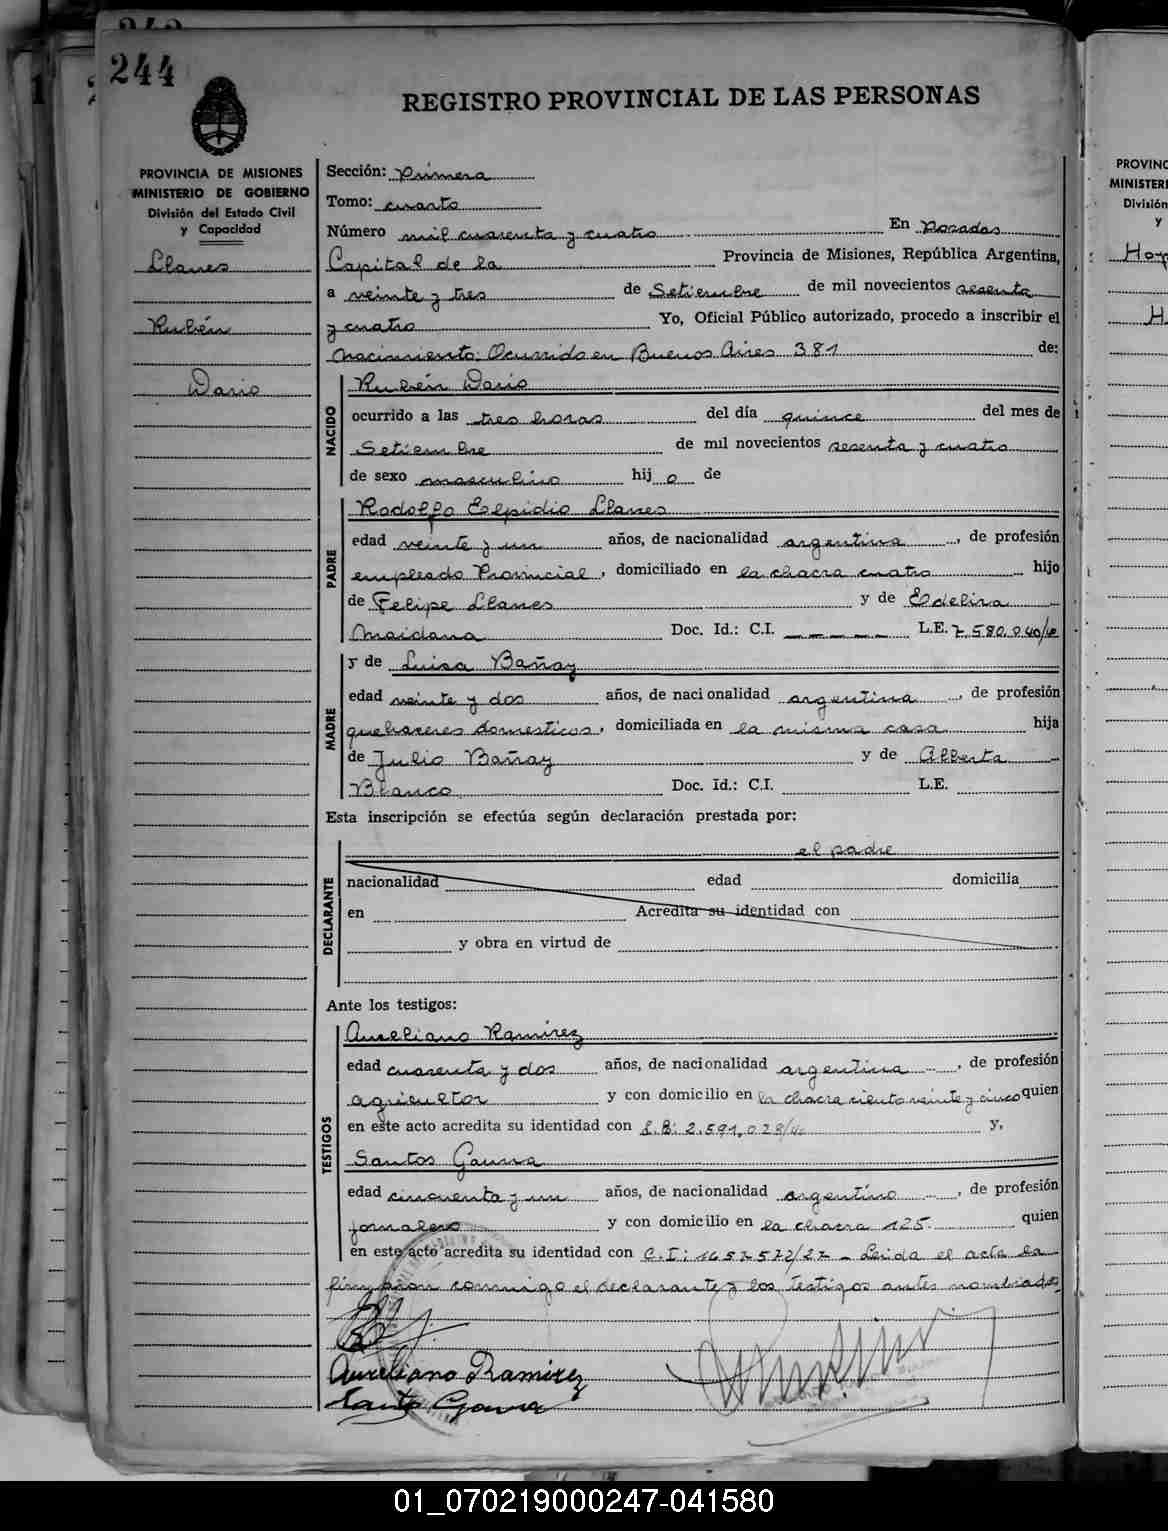 244
REGISTRO PROVINCIAL DE LAS PERSONAS
PROVINCIA DE MISIONES
MINISTERIO DE GOBIERNO
División del Estado Civil
y Capacidad
Llanes
Rubén
Dario
Sección: Primera
Tomo: cuarto
Número mil cuarenta y cuatro En Posadas
Capital de la Provincia de Misiones, República Argentina,
a veinte y tres de Setiembre de mil novecientos sesenta
y cuatro Yo, Oficial Público autorizado, procedo a inscribir el
nacimiento: Ocurrido en Buenos Aires 381 de:
NACIDO
Rubén Dario
ocurrido a las tres horas del día quince del mes de
Setiembre de mil novecientos sesenta y cuatro
de sexo masculino hij o de
PADRE
Rodolfo Elpidio Llanes
edad veinte y un años, de nacionalidad argentina, de profesión
empleado Provincial, domiciliado en la chacra cuatro hijo
de Felipe Llanes y de Edelira
Maidana Doc. Id.: C.I. — — — — — L.E. 7.580.040
MADRE
y de Luisa Bañay
edad veinte y dos años, de nacionalidad argentina, de profesión
quehaceres domesticos, domiciliada en la misma casa hija
de Julio Bañay y de Alberta
Blanco Doc. Id.: C.I. L.E.
Esta inscripción se efectúa según declaración prestada por:
DECLARANTE
el padre
nacionalidad edad domicilia
en Acredita su identidad con
y obra en virtud de
Ante los testigos:
TESTIGOS
Aureliano Ramirez
edad cuarenta y dos años, de nacionalidad argentina, de profesión
agricultor y con domicilio en la chacra ciento veinte y cinco quien
en este acto acredita su identidad con 2.591.028 y,
Santos Gauna
edad cincuenta y un años, de nacionalidad argentino, de profesión
jornalero y con domicilio en la chacra 125. quien
en este acto acredita su identidad con C.I: 1657572/27 - Leida el acta la
firmaron conmigo el declarante y los testigos antes nombrados
Aureliano Ramirez
Santo Gauna
PROVINC
MINISTERI
División
y
01_070219000247-041580